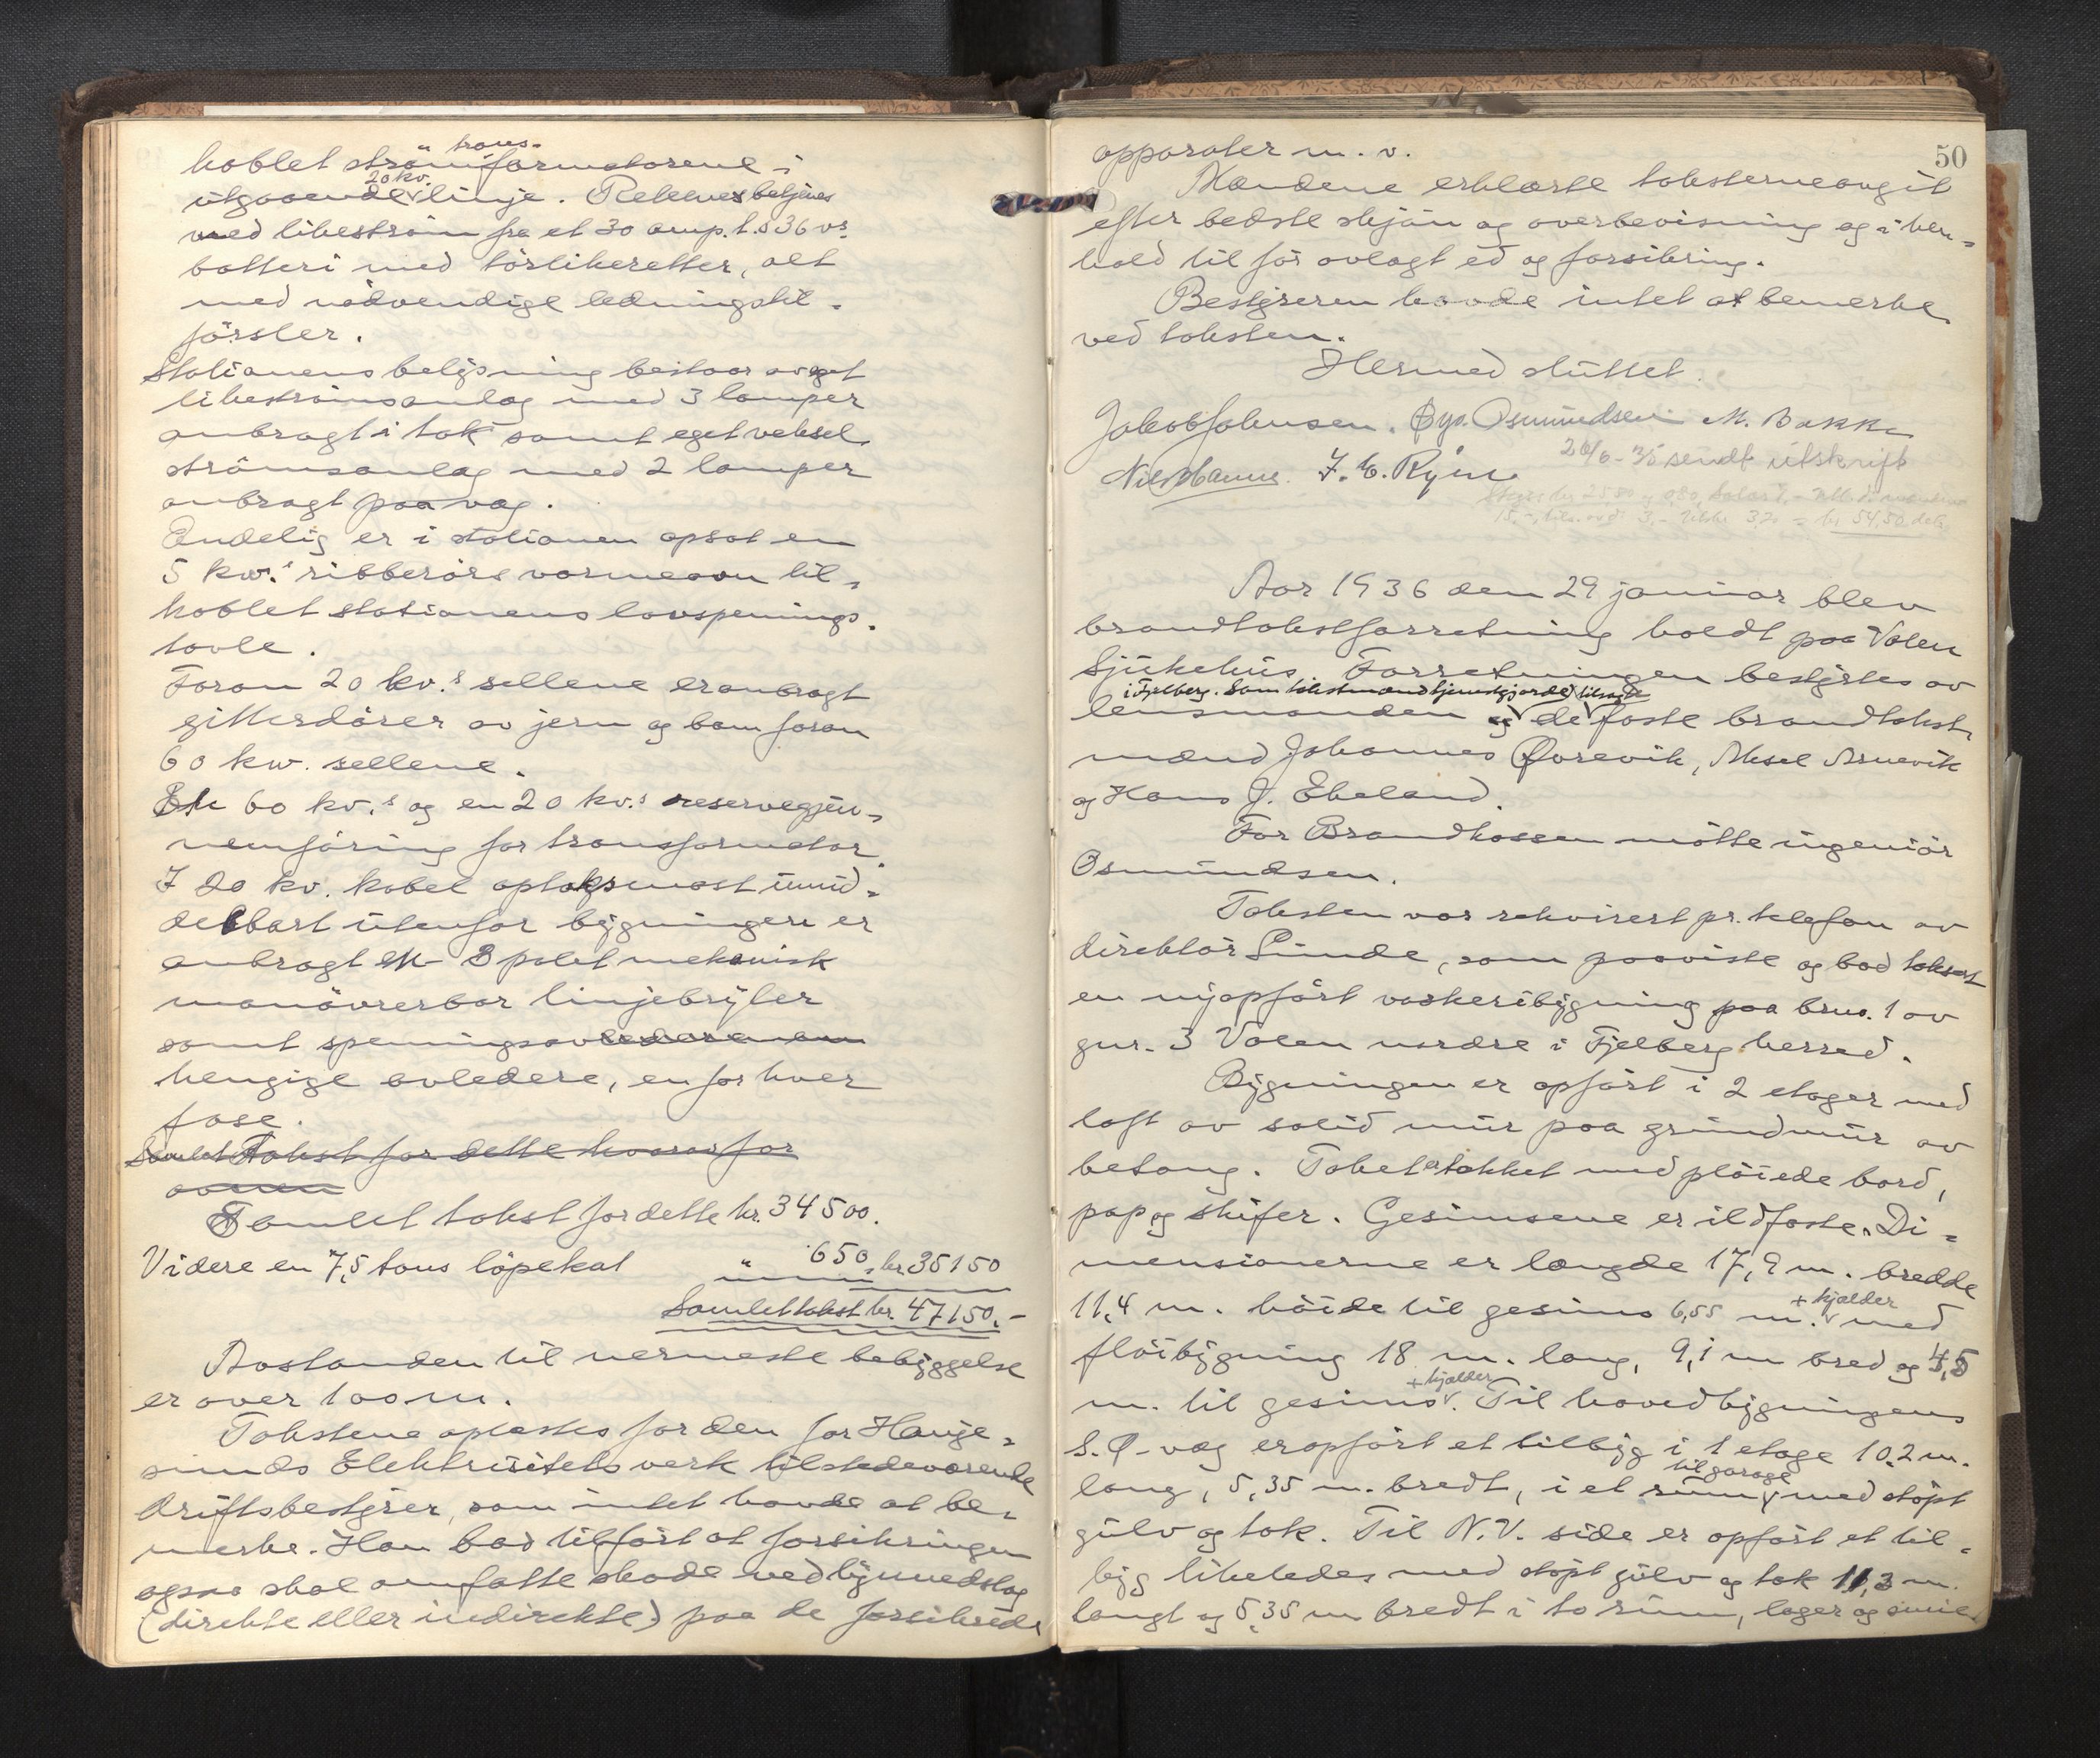 koblet strömtrans-formatorene i
utgaaende 20 kv. linje. Releene betjenes
med likeström fra et 30 amp.t.s 36 v.s
batteri med törlikeretter, alt
med nödvendige ledningstil-
försler.
Stationens belysning bestaar av eget
likeströmsanlæg med 3 lamper
anbragt i tak samt eget veksel-
strömsanlæg med 2 lamper
anbragt paa væg.
Endelig er i stationen opsat en
5 kw.s ribberörs varmeovn til-
koblet stationens lavspennings-
tavle.
Foran 20 kv.s sellene er anbragt
gitterdörer av jern og bom foran
60 kw. sellene.
En 60 kv.s og en 20 kv.s reservegjen-
nemföring for transformator.
I 20 kv. kabel optaksmast umid-
delbart utenfor bygningen er
anbragt en 3 polet mekanisk
manövrerbar linjebryter
samt spenningsavledere
hengige avledere, en for hver
fase.
Samlet Takst for dette hvorav for
ovnen
Samlet takst for dette kr. 34500.
Videre en 7,5 tons löpekat " 650,- kr 35150
Samlet takst kr. 47150.-
Avstanden til nermeste bebyggelse
er over 100 m.
Takstene oplæstes for den for Hauge-
sunds Elektrisitetsverk tilstedeværende
driftsbestyrer, som intet havde at be-
merke. Han bad tilfört at forsikringen
ogsaa skal omfatte skade ved lynnedslag
(direkte eller indirekte) paa de forsikrede
50
apparater m. v.
Mændene erklærte taksterne avgit
efter bedste skjön og overbevisning og i hen-
hold til för avlagt ed og forsikring.
Bestyreren havde intet at bemerke
ved taksten.
Hermed sluttet.
Jakob Johnsen. Øyv. Osmundsen M. Bakke
Nils Hanne. J. E. Ryen
20/6-35 sendt utskrift
15.-, 3,- 3,20 = kr 54,50
Aar 1936 den 29 januar blev
brandtakstforretning holdt paa Valen
Sjukehus. Forretningen bestyrtes av
i Fjelberg. Som takstmænd tjenestgjorde tilsagte
lensmanden og de faste brandtakst-
mænd Johannes Øvrevik, Aksel Arnevik
og Hans J. Ekeland.
For Brandkassen mötte ingeniör
Osmundsen.
Taksten var rekvirert pr. telefon av
direktör Sunde, som paaviste og bad taksert
en nyopfört vaskeribygning paa brno. 1 av
gnr. 3 Valen nordre i Fjelberg herred.
Bygningen er opfört i 2 etager med
loft av solid mur paa grundmur av
betong. Taket er tækket med plöiede bord,
pap og skifer. Gesimsene er ildfaste. Di-
mensionerne er længde 17,9 m. bredde
11,4 m. höide til gesims 6,55 m. + kjælder med
flöibygning 18 m. lang, 9,1 m bred og 4,5
m. til gesims + kjælder. Til hovedbygningens
S.Ø-væg er opfört et tilbyg i 1 etage 10,2 m.
lang, 5,35 m. bredt, i et rum til garage med stöpt
gulv og tak. Til N.V. side er opfört et til-
byg likeledes med stöpt gulv og tak 11,3 m.
langt og 5,35 m bredt i to rum, lager og smie.